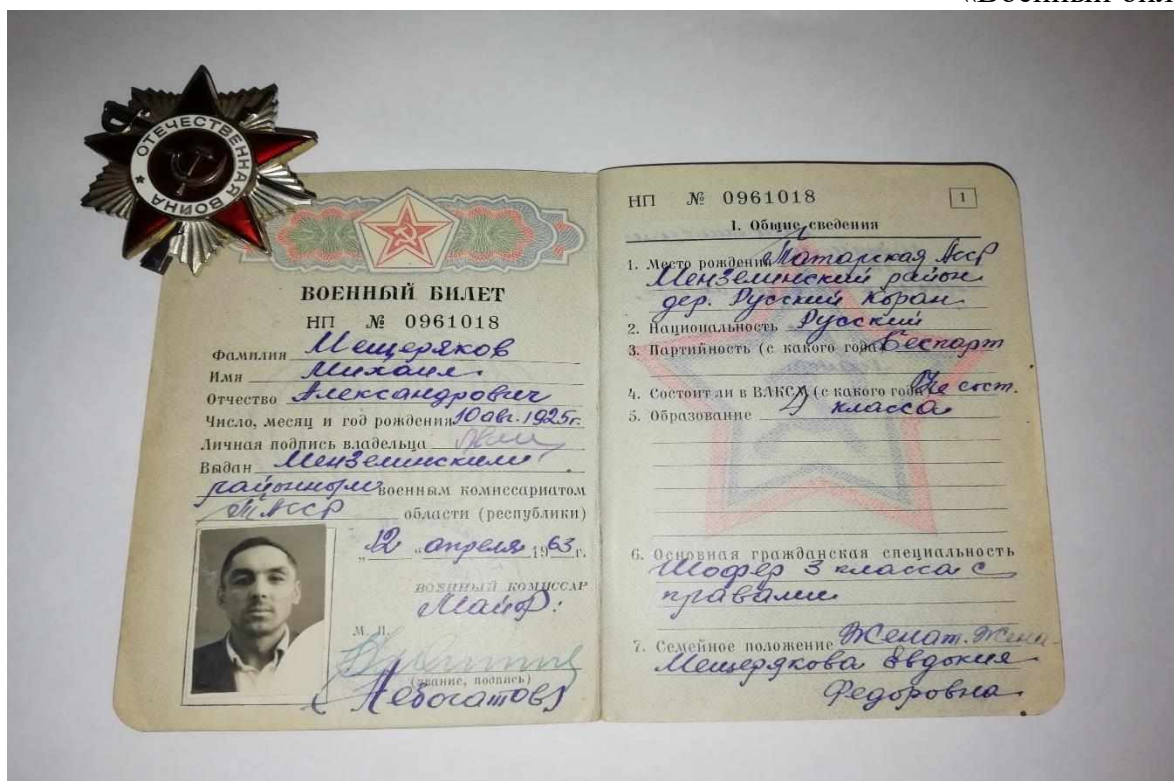 «Военный бил
ОТЕЧЕСТВЕННАЯ ВОЙНА
ВОЕННЫЙ БИЛЕТ
НП № 0961018
Фамилия Мещеряков
Имя Михаил
Отчество Александрович
Число, месяц и год рождения 10 авг. 1925г.
Личная подпись владельца
Выдан Мензелинским
районным военным комиссариатом
ТАССР области (республики)
„12 „ апреля 1963 г.
ВОЕННЫЙ КОМИССАР
Майор:
М. П.
(звание, подпись)
(Небогатов)
НП № 0961018
1
I. Общие сведения
1. Место рождения Татарская Асср
Мензелинский район
дер. Русский Коран
2. Национальность Русский
3. Партийность (с какого года) Беспарт
4. Состоит ли в ВЛКСМ (с какого года) Не сост.
5. Образование 4 класса
6. Основная гражданская специальность
Шофер 3 класса с
правами
7. Семейное положение Женат. Жена-
Мещерякова Евдокия
Федоровна